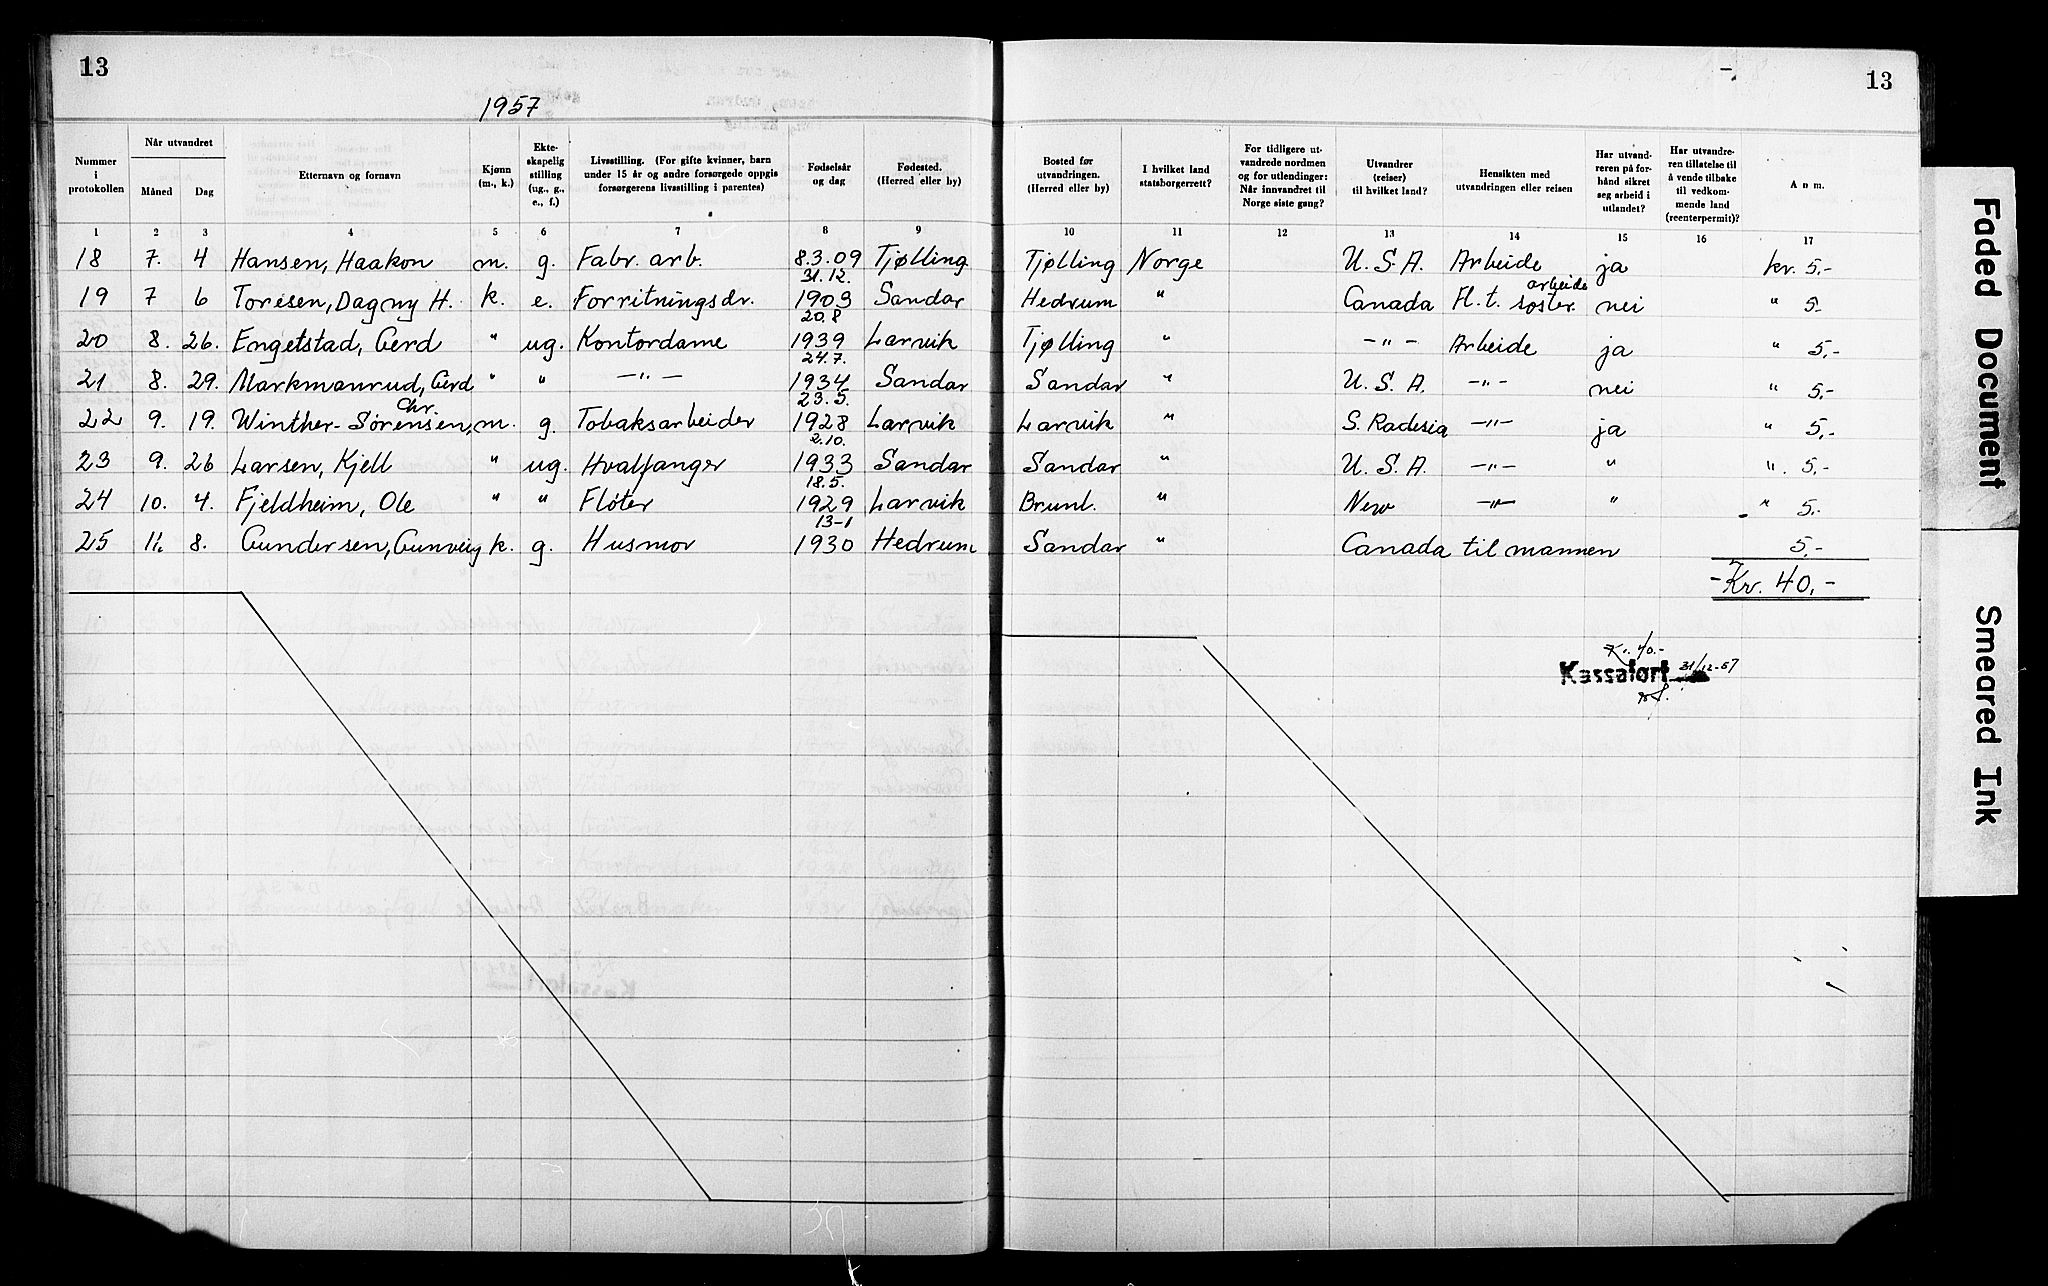 13
13
1957
Nummer i protokollen
Når utvandret
Måned
Dag
Etternavn og fornavn
Kjønn (m., k.)
Ekteskapelig stilling (ug., g., e., f.)
Livsstilling. (For gifte kvinner, barn under 15 år og andre forsørgede oppgis forsørgerens livsstilling i parentes)
Fødselsår og dag
Fødested. (Herred eller by)
Bosted før utvandringen. (Herred eller by)
I hvilket land statsborgerrett?
For tidligere utvandrede nordmen og for utlendinger: Når innvandret til Norge siste gang?
Utvandrer (reiser) til hvilket land?
Hensikten med utvandringen eller reisen
Har utvandreren på forhånd sikret seg arbeid i utlandet?
Har utvandreren tillatelse til å vende tilbake til vedkommende land (reenterpermit)?
Anm.
1 2 3 4 5 6 7 8 9 10 11 12 13 14 15 16 17
18 7. 4 Hansen, Haakon m. g. Fabr. arb. 8.3.09 Tjølling Tjølling Norge U.S.A. Arbeide ja kr. 5,-
19 7 6 Toresen, Dagny H. k. e. Forritningsdr. 31.12. 1903 Sandar Hedrum " Canada Fl. t. søster. arbeide nei " 5-
20 8. 26. Engetstad, Gerd " ug. Kontordame 20.8 1939 Larvik Tjølling " -"- Arbeide ja " 5,-
21 8. 29. Markmanrud, Gerd " " -"- 24.7. 1934 Sandar Sandar " U.S.A. -"- nei " 5,-
22 9. 19. Winther-Sørensen, Chr. m. g. Tobaksarbeider 23.5. 1928 Larvik Larvik " S. Radesia -"- ja " 5,-
23 9. 26 Larsen, Kjell " ug. Hvalfanger 2.10. 1933 Sandar Sandar " U.S.A. -"- " " 5,-
24 10. 4. Fjeldheim, Ole " " Fløter 18.5. 1929 Larvik Brunl. " New -"- " " 5,-
25 11. 8. Gundersen, Gunveig k. g. Husmor 13-1 1930 Hedrum Sandar " Canada til mannen 5,-
Kr. 40,-
Kr. 40.-
Kassaført 31/12-57
Faded Document
Smeared Ink